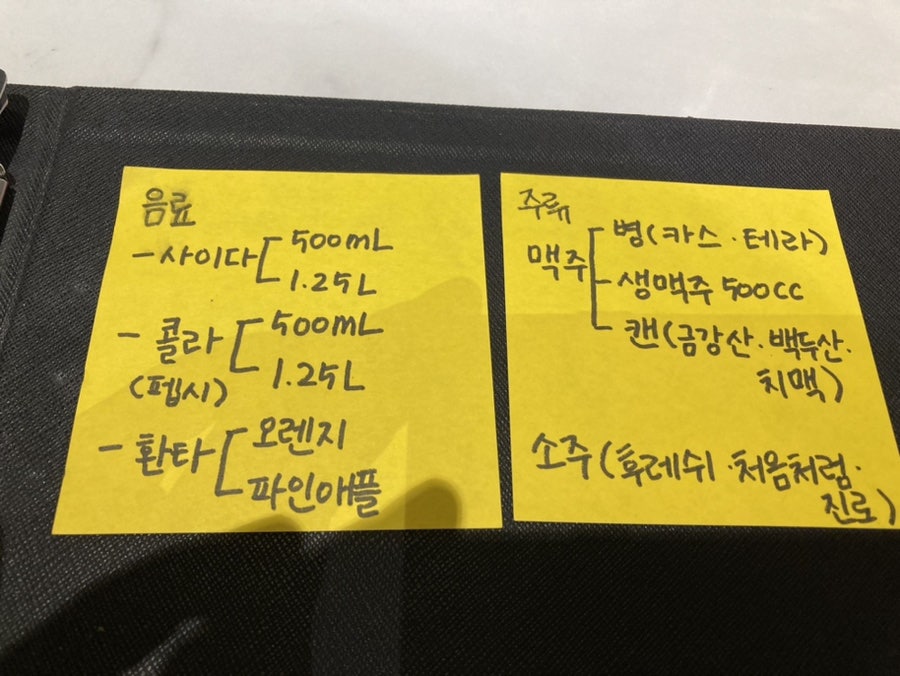 음료
- 사이다 500mL
1.25L
- 콜라 500mL
(펩시) 1.25L
- 환타 오렌지
파인애플
주류
맥주 병(카스·테라)
생맥주 500cc
캔(금강산·백두산·
치맥)
소주(후레쉬·처음처럼·
진로)